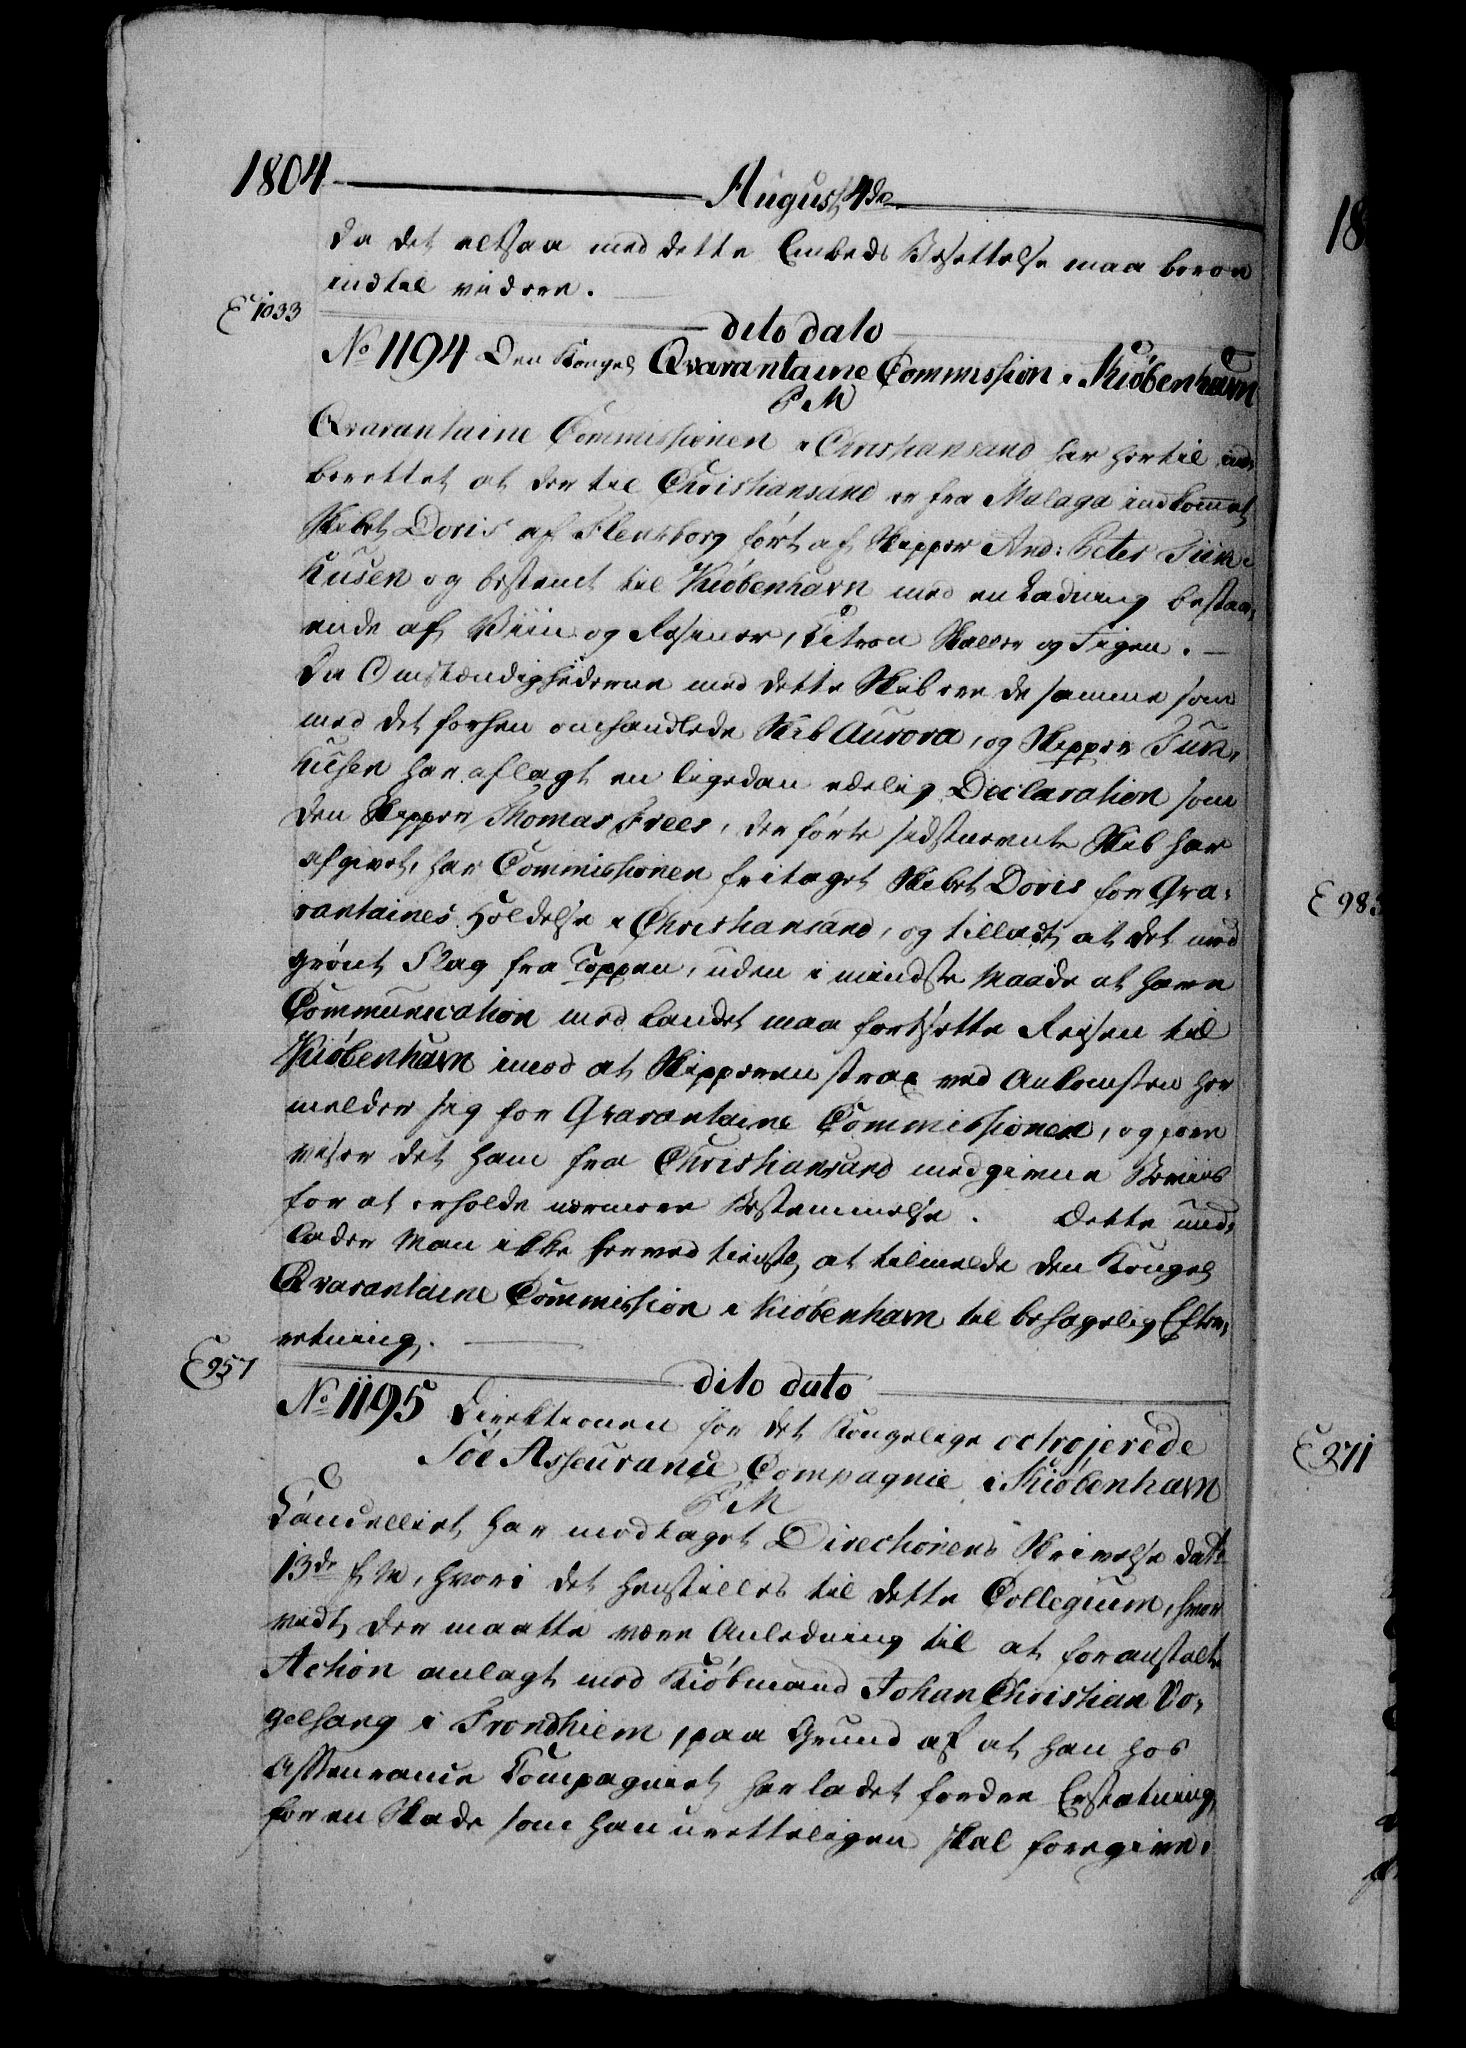 1804 August 4de
da det altsaa med dette Embeds Besættelse maa beroe
indtil videre.
E 1033
dito dato
No 1194 Den Kongel Qvarantaine Commission i Kiöbenhavn
P M
Qvarantaine Commissionen i Christiansand har hertil ind-
berettet at der til Christiansand er fra Malaga indkommet
Skibet Doris af Flensborg ført af Skipper And: Peter Tún-
kúsen og bestemt til Kiöbenhavn med en Ladning bestaa-
ende af Viin og Rosiner, Citron Skaller og Figen. —
Da Omstændighederne med dette Skib ere de samme som
med det forhen omhandlede Skib Aurora, og Skipper Tún-
kúsen har aflagt en ligedan edelig Declaration som
den Skipper Thomas Frees, der førte sidstnevnte Skib har
afgivet, har Commissionen fritaget Skibet Doris for Qva-
rantaines Holdelse i Christiansand, og tilladt at det med
grønt Flag fra Toppen, uden i mindste Maade at have
Communication med Landet maa fortsætte Reisen til
Kiöbenhavn imod at Skipperen strax ved Ankomsten her
melder sig for Qvarantaine Commissionen, og fore
viser det ham fra Christiansand medgivne Beviis
for at erholde nærmere Bestemmelse. Dette und-
lader Man ikke herved tienstl at tilmelde den Kongel
Qvarantaine Commission i Kiöbenhavn til behagelig Efter-
retning.
E 957
dito dato
No 1195 Direktionen for det Kongelige octrojerede
Söe Asseurance Compagnie i Kiöbenhavn
P M
Cancelliet har modtaget Directionens Skrivelse dat
13de f M, hvori det henstilles til dette Collegium, hvor
vidt der maatte være Anledning til at foranstalte
Action anlagt mod Kiöbmand Johan Christian Vo-
gelsang i Trondhiem, paa Grund af at han hos
Assurance Compagniet har ladet fordre Erstatning
for en Skade som han uretteligen skal foregive.
18
E 98
E 971